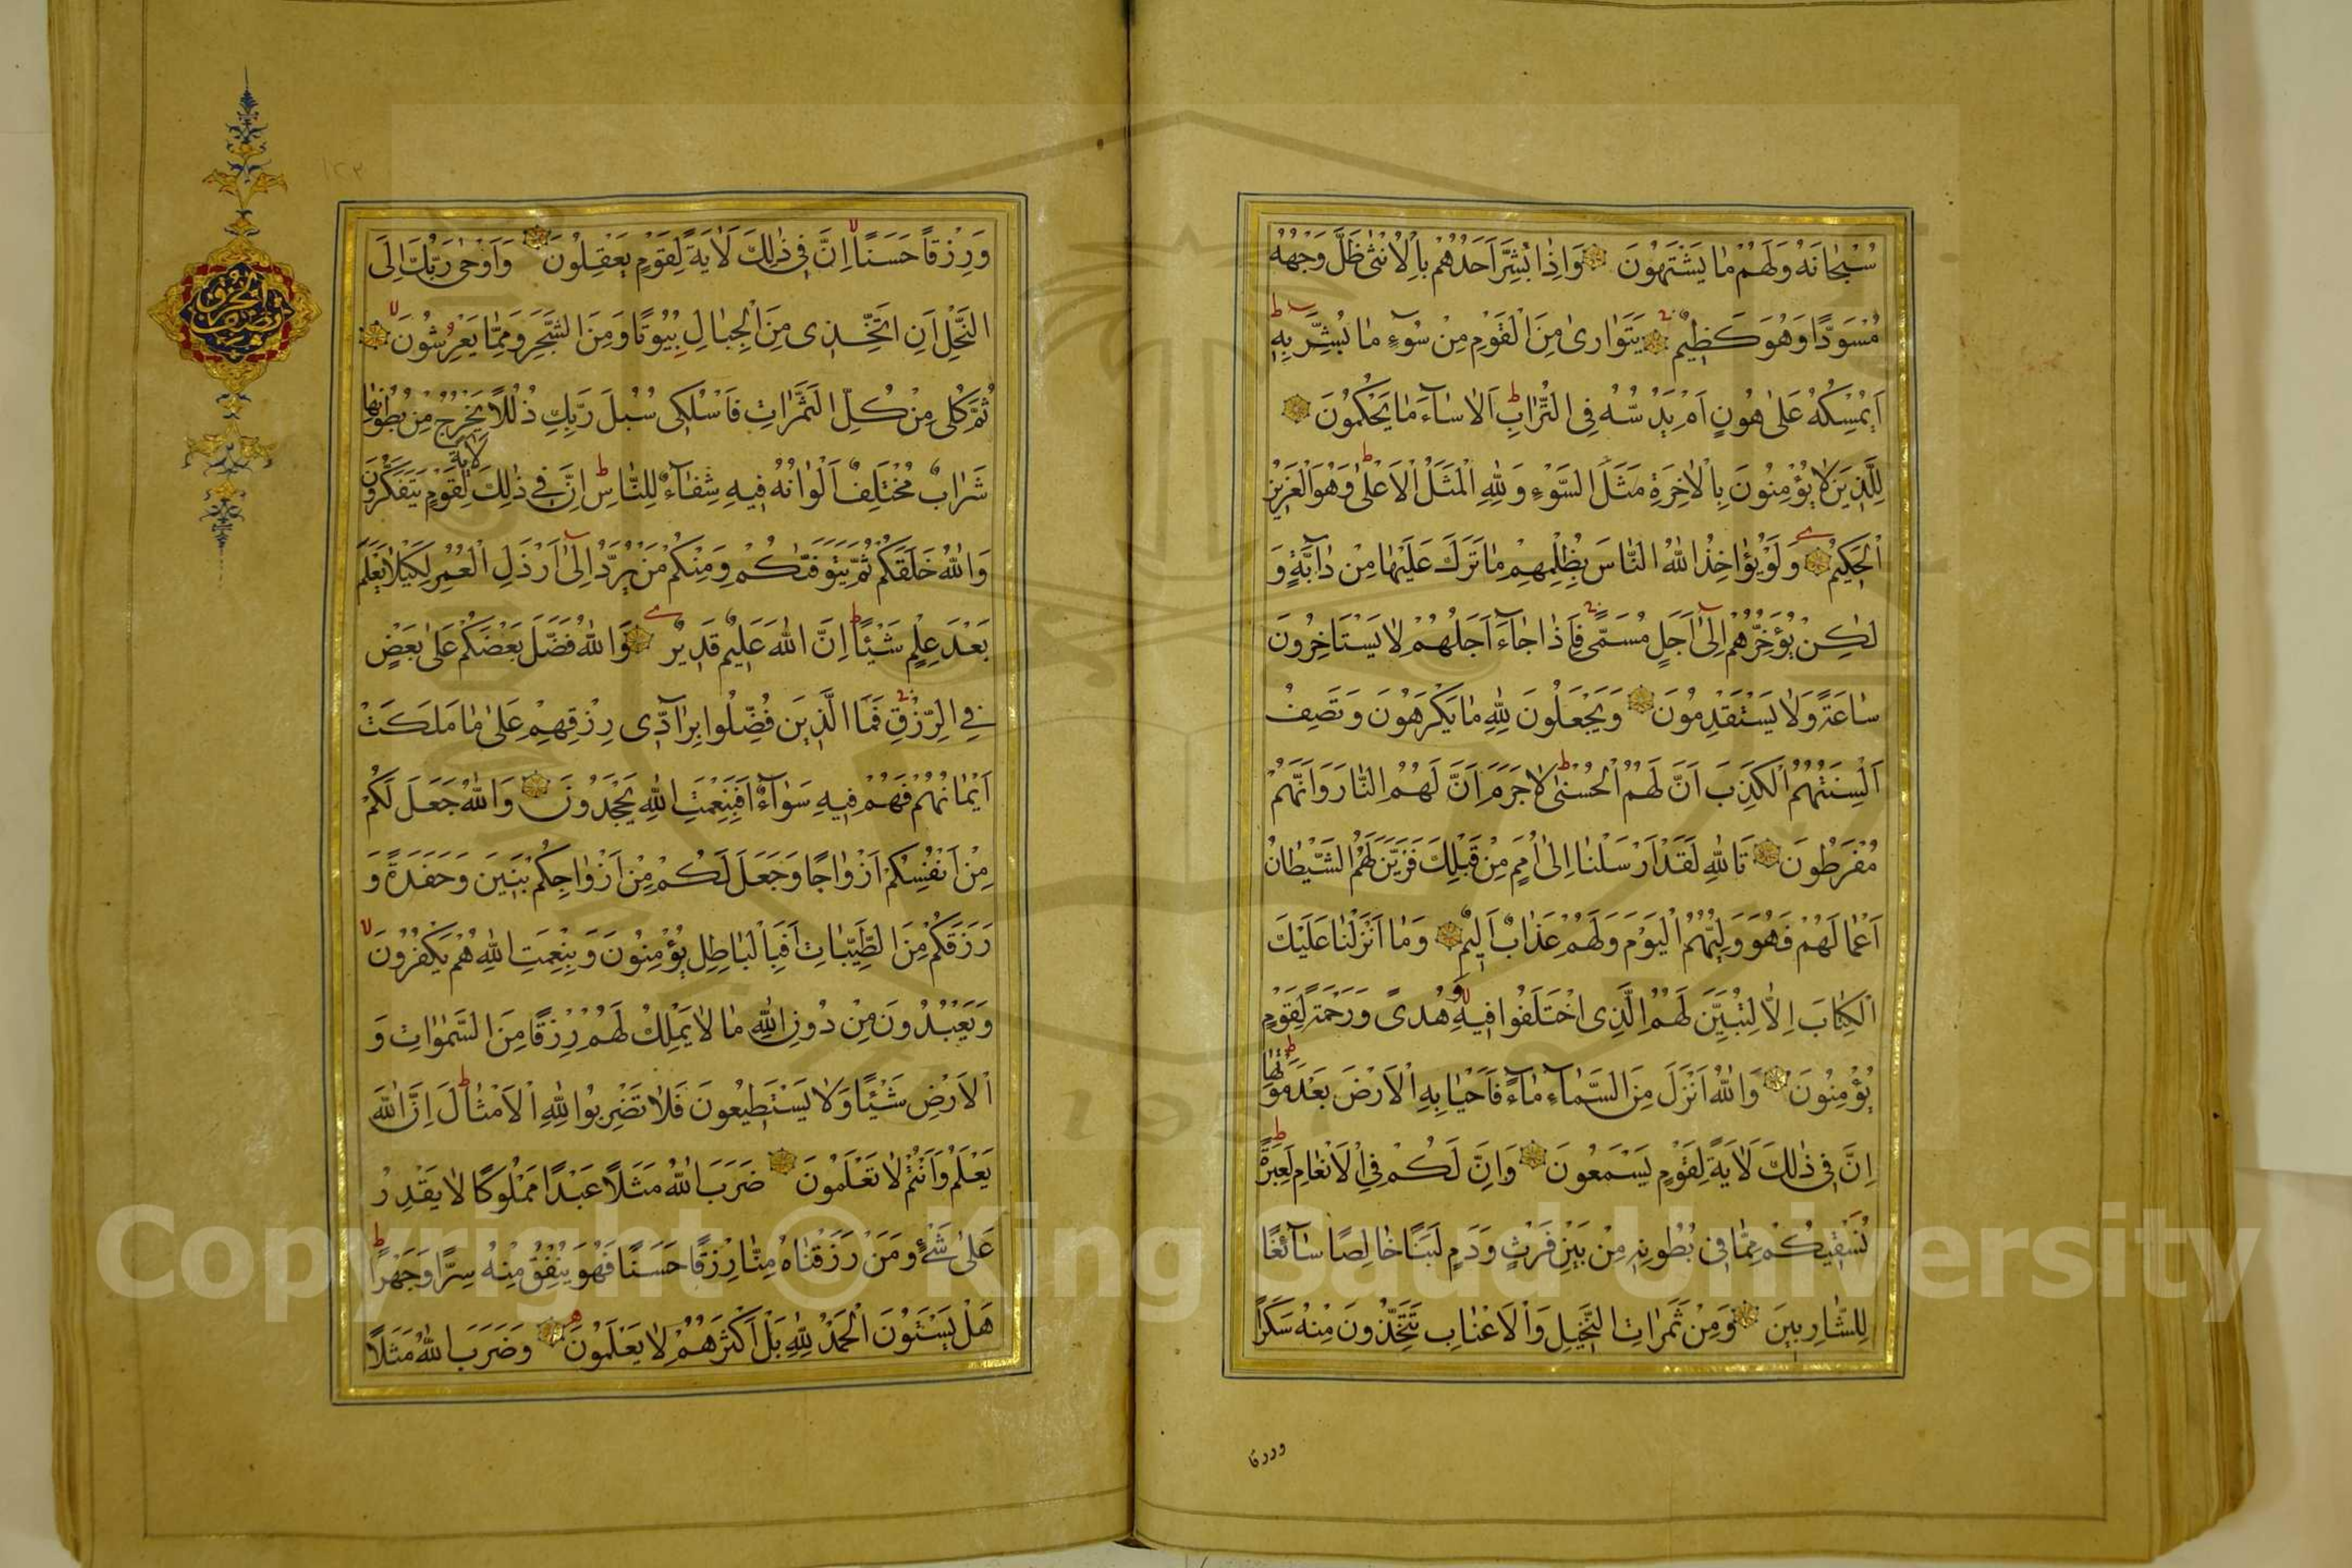 سُبْحَانَهُ وَلَهُمْ مَا يَشْتَهُونَ وَاِذَا بُشِّرَ اَحَدُهُمْ بِالْاُنْثٰى ظَلَّ وَجْهُهُ
مُسْوَدًّا وَهُوَ كَظِيمٌ يَتَوَارٰى مِنَ الْقَوْمِ مِنْ سُوٓءِ مَا بُشِّرَ بِهِ
اَيُمْسِكُهُ عَلٰى هُونٍ اَمْ يَدُسُّهُ فِى التُّرَابِ اَلَا سَآءَ مَا يَحْكُمُونَ
لِلَّذِينَ لَا يُؤْمِنُونَ بِالْاٰخِرَةِ مَثَلُ السَّوْءِ وَلِلّٰهِ الْمَثَلُ الْاَعْلٰى وَهُوَ الْعَزِيزُ
الْحَكِيمُ وَلَوْ يُؤَاخِذُ اللّٰهُ النَّاسَ بِظُلْمِهِمْ مَا تَرَكَ عَلَيْهَا مِنْ دَآبَّةٍ وَ
لٰكِنْ يُؤَخِّرُهُمْ اِلٰٓى اَجَلٍ مُسَمًّى فَاِذَا جَآءَ اَجَلُهُمْ لَا يَسْتَاْخِرُونَ
سَاعَةً وَلَا يَسْتَقْدِمُونَ وَيَجْعَلُونَ لِلّٰهِ مَا يَكْرَهُونَ وَتَصِفُ
اَلْسِنَتُهُمُ الْكَذِبَ اَنَّ لَهُمُ الْحُسْنٰى لَا جَرَمَ اَنَّ لَهُمُ النَّارَ وَاَنَّهُمْ
مُفْرَطُونَ تَاللّٰهِ لَقَدْ اَرْسَلْنَا اِلٰى اُمَمٍ مِنْ قَبْلِكَ فَزَيَّنَ لَهُمُ الشَّيْطَانُ
اَعْمَالَهُمْ فَهُوَ وَلِيُّهُمُ الْيَوْمَ وَلَهُمْ عَذَابٌ اَلِيمٌ وَمَا اَنْزَلْنَا عَلَيْكَ
الْكِتَابَ اِلَّا لِتُبَيِّنَ لَهُمُ الَّذِى اخْتَلَفُوا فِيهِ وَهُدًى وَرَحْمَةً لِقَوْمٍ
يُؤْمِنُونَ وَاللّٰهُ اَنْزَلَ مِنَ السَّمَآءِ مَآءً فَاَحْيَا بِهِ الْاَرْضَ بَعْدَ مَوْتِهَا
اِنَّ فِى ذٰلِكَ لَاٰيَةً لِقَوْمٍ يَسْمَعُونَ وَاِنَّ لَكُمْ فِى الْاَنْعَامِ لَعِبْرَةً
نُسْقِيكُمْ مِمَّا فِى بُطُونِهِ مِنْ بَيْنِ فَرْثٍ وَدَمٍ لَبَنًا خَالِصًا سَآئِغًا
لِلشَّارِبِينَ وَمِنْ ثَمَرَاتِ النَّخِيلِ وَالْاَعْنَابِ تَتَّخِذُونَ مِنْهُ سَكَرًا
ورزقا
١٢٣
وَرِزْقًا حَسَنًا اِنَّ فِى ذٰلِكَ لَاٰيَةً لِقَوْمٍ يَعْقِلُونَ وَاَوْحٰى رَبُّكَ اِلَى
النَّحْلِ اَنِ اتَّخِذِى مِنَ الْجِبَالِ بُيُوتًا وَمِنَ الشَّجَرِ وَمِمَّا يَعْرِشُونَ
ثُمَّ كُلِى مِنْ كُلِّ الثَّمَرَاتِ فَاسْلُكِى سُبُلَ رَبِّكِ ذُلُلًا يَخْرُجُ مِنْ بُطُونِهَا
شَرَابٌ مُخْتَلِفٌ اَلْوَانُهُ فِيهِ شِفَآءٌ لِلنَّاسِ اِنَّ فِى ذٰلِكَ لَاٰيَةً لِقَوْمٍ يَتَفَكَّرُونَ
وَاللّٰهُ خَلَقَكُمْ ثُمَّ يَتَوَفّٰىكُمْ وَمِنْكُمْ مَنْ يُرَدُّ اِلٰٓى اَرْذَلِ الْعُمُرِ لِكَيْلَا يَعْلَمَ
بَعْدَ عِلْمٍ شَيْئًا اِنَّ اللّٰهَ عَلِيمٌ قَدِيرٌ وَاللّٰهُ فَضَّلَ بَعْضَكُمْ عَلٰى بَعْضٍ
فِى الرِّزْقِ فَمَا الَّذِينَ فُضِّلُوا بِرَآدِّى رِزْقِهِمْ عَلٰى مَا مَلَكَتْ
اَيْمَانُهُمْ فَهُمْ فِيهِ سَوَآءٌ اَفَبِنِعْمَةِ اللّٰهِ يَجْحَدُونَ وَاللّٰهُ جَعَلَ لَكُمْ
مِنْ اَنْفُسِكُمْ اَزْوَاجًا وَجَعَلَ لَكُمْ مِنْ اَزْوَاجِكُمْ بَنِينَ وَحَفَدَةً وَ
رَزَقَكُمْ مِنَ الطَّيِّبَاتِ اَفَبِالْبَاطِلِ يُؤْمِنُونَ وَبِنِعْمَتِ اللّٰهِ هُمْ يَكْفُرُونَ
وَيَعْبُدُونَ مِنْ دُونِ اللّٰهِ مَا لَا يَمْلِكُ لَهُمْ رِزْقًا مِنَ السَّمٰوَاتِ وَ
الْاَرْضِ شَيْئًا وَلَا يَسْتَطِيعُونَ فَلَا تَضْرِبُوا لِلّٰهِ الْاَمْثَالَ اِنَّ اللّٰهَ
يَعْلَمُ وَاَنْتُمْ لَا تَعْلَمُونَ ضَرَبَ اللّٰهُ مَثَلًا عَبْدًا مَمْلُوكًا لَا يَقْدِرُ
عَلٰى شَىْءٍ وَمَنْ رَزَقْنَاهُ مِنَّا رِزْقًا حَسَنًا فَهُوَ يُنْفِقُ مِنْهُ سِرًّا وَجَهْرًا
هَلْ يَسْتَوُنَ الْحَمْدُ لِلّٰهِ بَلْ اَكْثَرُهُمْ لَا يَعْلَمُونَ وَضَرَبَ اللّٰهُ مَثَلًا
Copyright © King Saud University